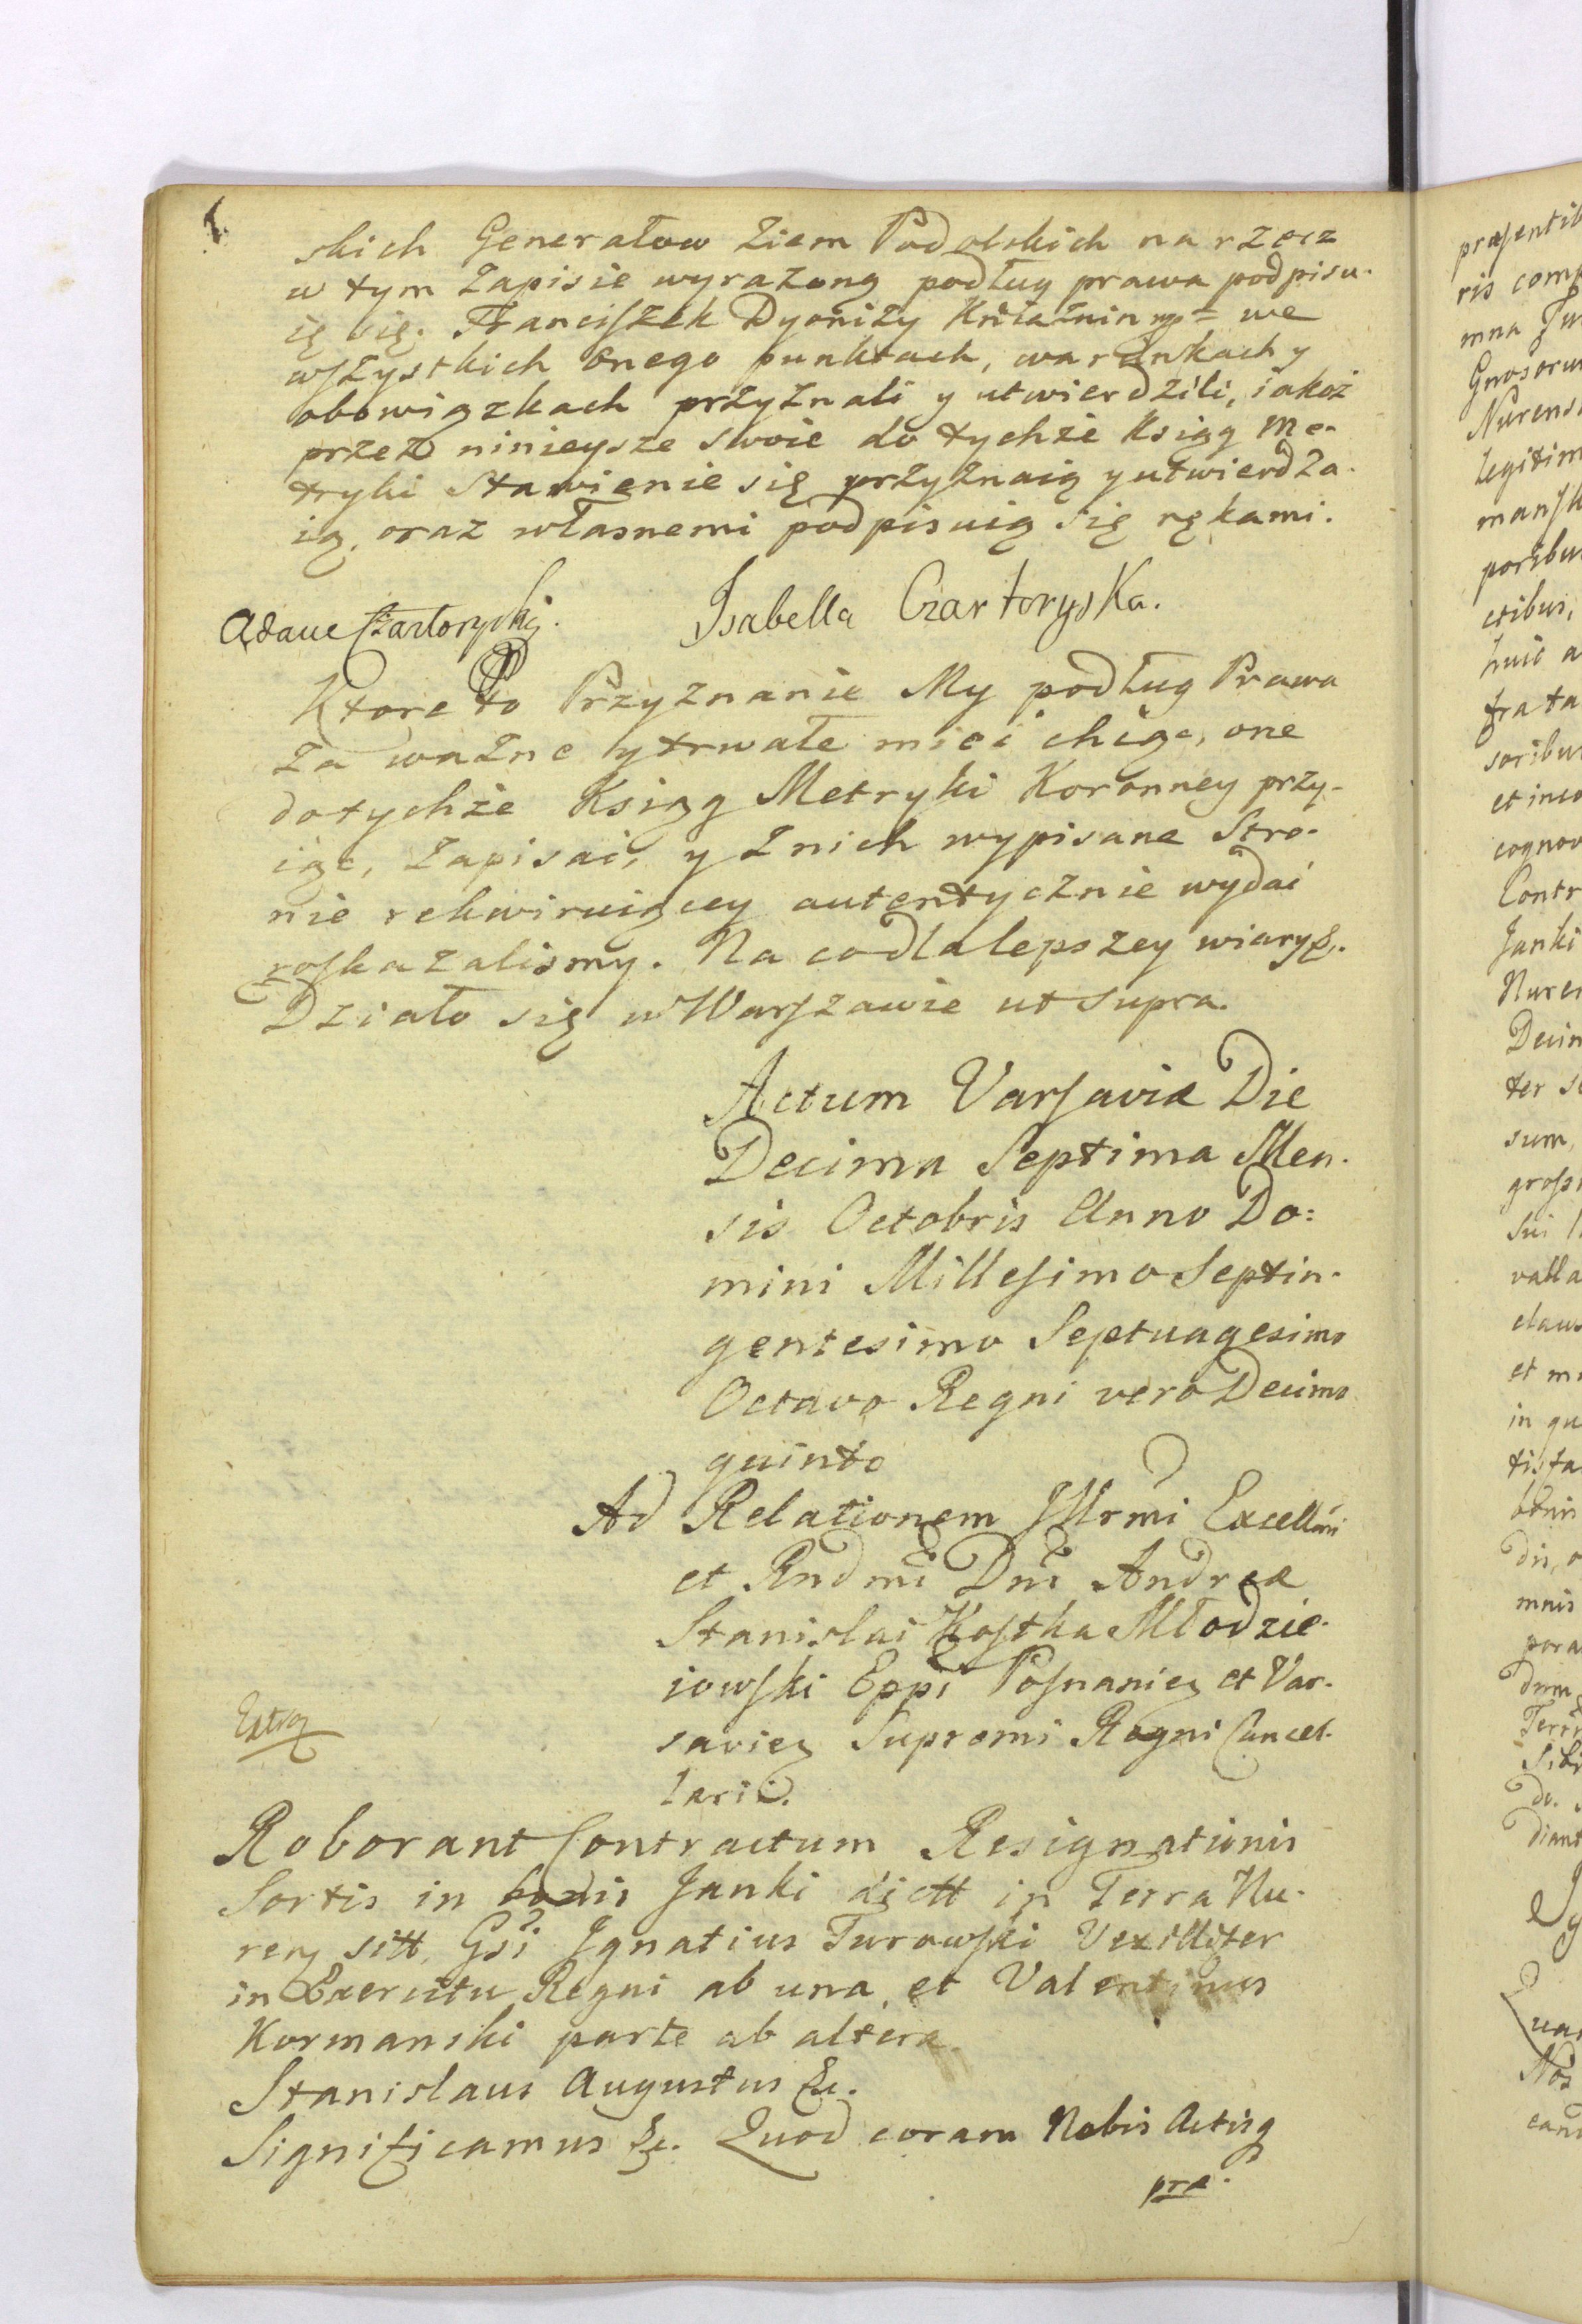 skich Generałow Ziem Podolskich na rzecz
w tym Zapisie wyrażoną podług prawa podpisu-
ię się. Franciszek Dyonizy Kniaźnin mp = we
wszystkich onego punktach, warunkach y
obowiązkach przyznali y utwierdzili, iakoż
przez ninieysze swoie do tychże Ksiąg Me-
tryki Stawienie się przyznaią y utwierdza-
ią, oraz własnemi podpisuią się rękami.
Adam Czartoryski. Isabella Czartoryska.
Ktore to Przyznanie My podług Prawa
za ważne y trwałe mieć chcąc, one
do tychże Ksiąg Metryki Koronney przy-
iąć, zapisać, y z nich wypisane Stro-
nie rekwiruiącey autentycznie wydać
roskazalismy. Na co dla lepszey wiary &.
Działo się w Warszawie ut supra.
Actum Varsaviæ Die
Decima Septima Men-
sis Octobris Anno Do=
mini Millesimo Septin-
gentesimo Septuagesimo
Octavo Regni vero Decimo
quinto
Ad Relationem Illrmi Excellmi
et Rndmi Dni Andreæ
Stanislai Kostka Młodzie-
iowski Eppi Posnanien et Var-
savien Supremi Regni Cancel-
larii.
Extrag
Roborant Contractum Resignationis
Sortis in bonis Janki dictt in Terra Nu-
ren sitt, Gsi Ignatius Turowski Vexillifer
in Exercitu Regni ab una, et Valentinus
Kormanski parte ab altera.
Stanislaus Augustus &c.
Significamus &c. Quod coram Nobis Actisq
præ-
præsentib
ris comp
mna
Gnosorum
Nurens
legitim
mansk
poribu
ctibus,
huic a
frata
soribu
et inco
cognov
Contr
Janki
Nuren
Decim
ter s
sum,
gross
sui
valla
claus
et m
in qu
tisfa
bonis
dii, o
mnis
pora
dnm
Terr
Sibi
do.
diant
Quar
Nos